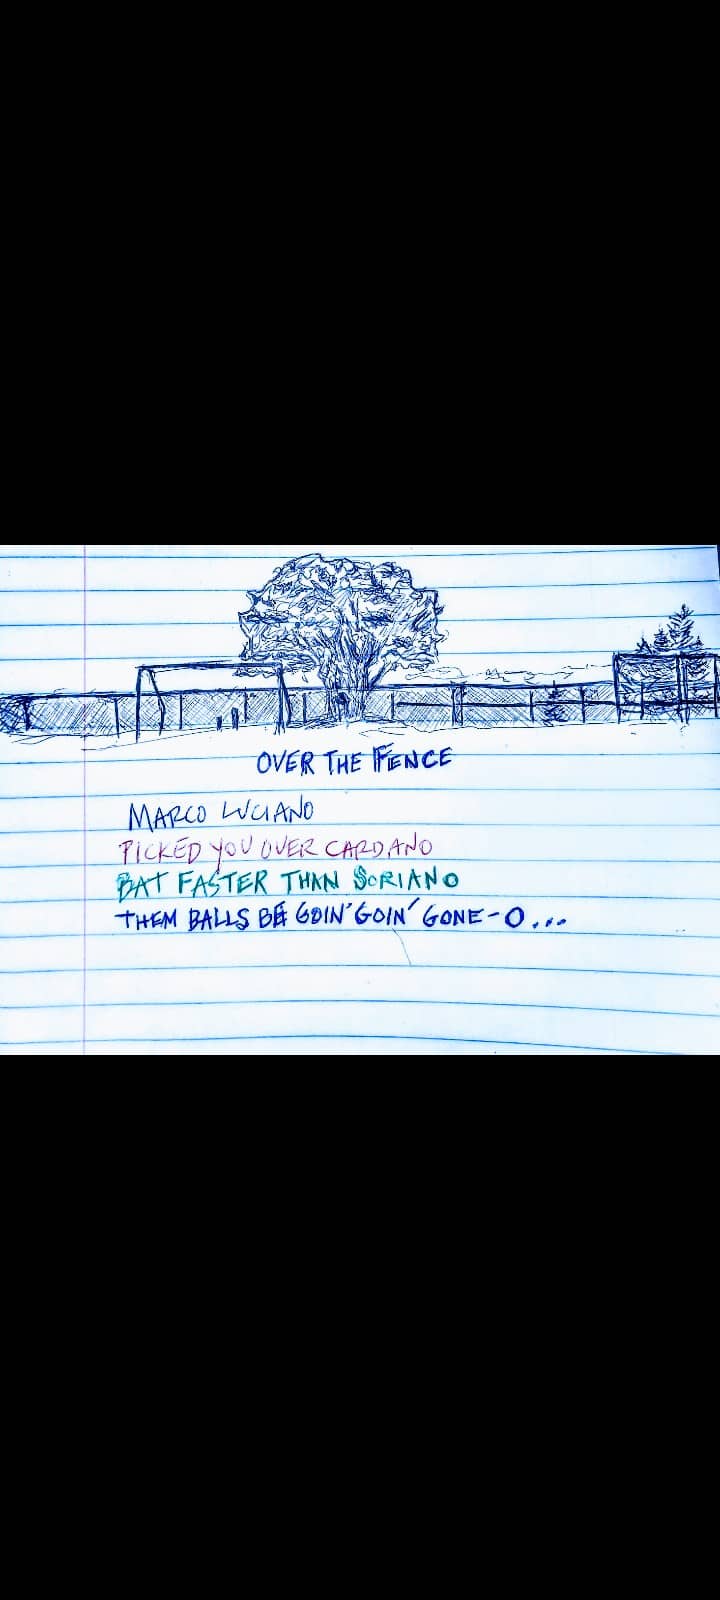 OVER THE FENCE
MARCO LUCIANO
PICKED YOU OVER CARDANO
BAT FASTER THAN SORIANO
THEM BALLS BE GOIN' GOIN' GONE-O...